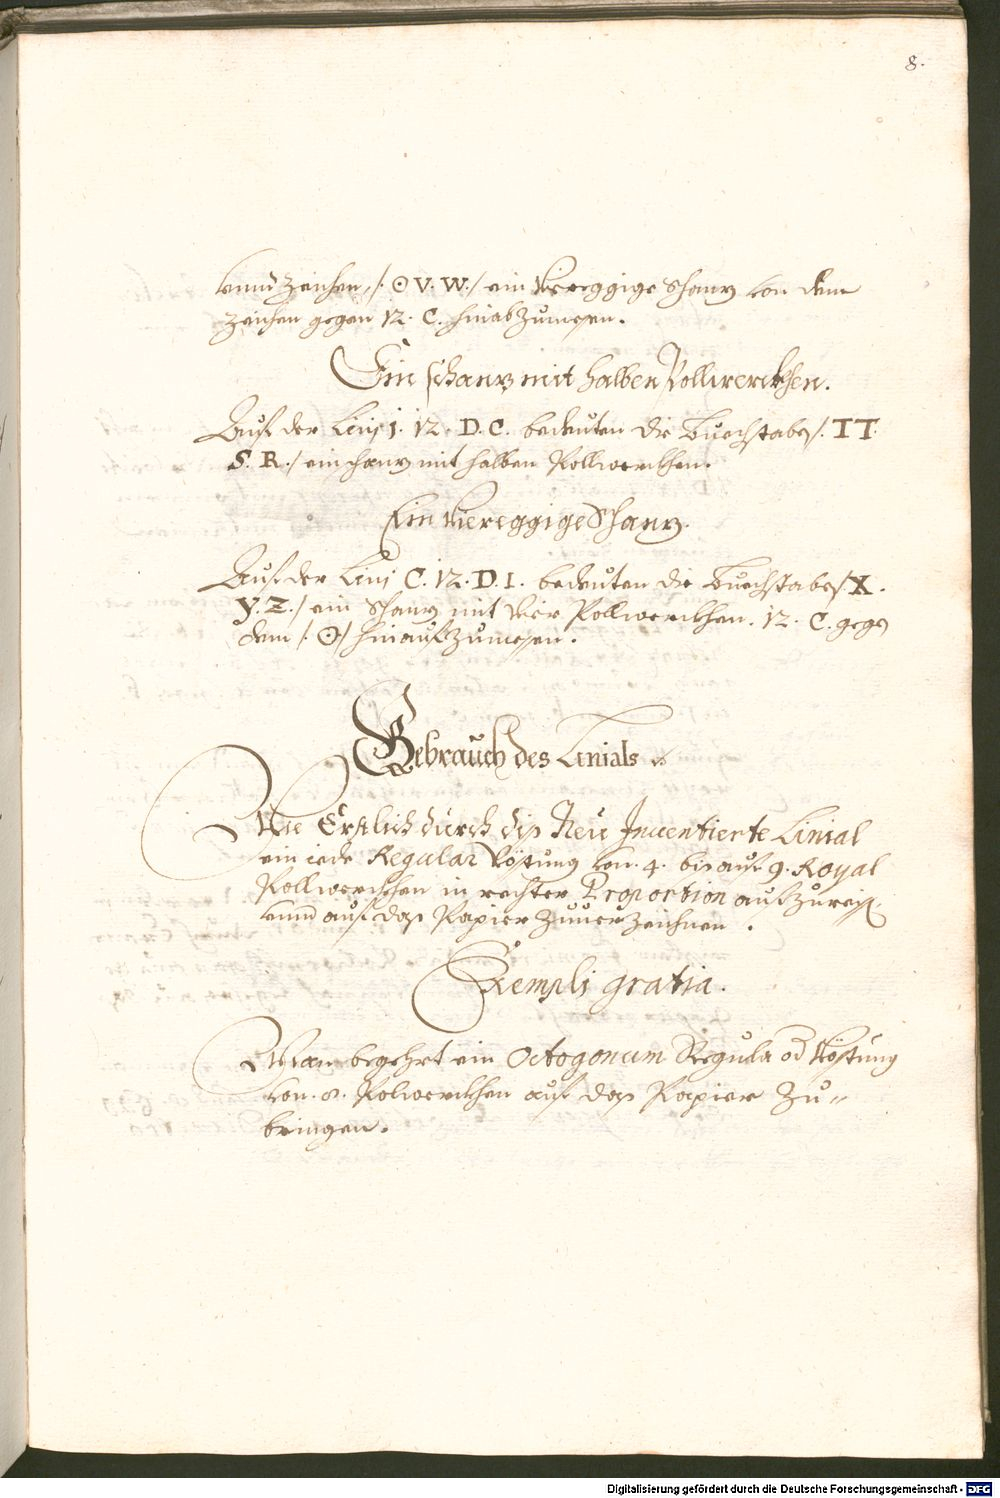 8.
vnnd Zeichen /: ⊙ V. W. / ein Viereggige Schantz von dem
Zeichen gegen 12. C. hinab Zumessen.
Ein schantz mit halben Pollwerckhen.
Auf der Linj 1. 12. D. C. bedeuten die Buechstaben /: TT
S. R. / ein schantz mit halben Pollwerckhen.
Ein Viereggige Schantz.
Auf der Linj C. 12. D. 1. bedeuten die Buechstaben / X.
Y. Z. / ein Schantz mit Vier Pollwerckhen. 12. C. gegen
dem /: ⊙ / hinauf Zumessen.
Gebrauch des Linials
Wie Erstlich durch diß Neu Inuentierte Linial
ein iede Regular Vöstung von. 4. biß auf 9. Royal
Pollwerckhen in rechter Proportion aufZureiß:
vnnd auf daß Papier Zuuerzeichnen.
Exempli gratia.
Man begehrt ein Octogonum Regula od Vöstung
von. 8. Polwerckhen auf daß Papier Zu„
bringen.
Digitalisierung gefördert durch die Deutsche Forschungsgemeinschaft - DFG